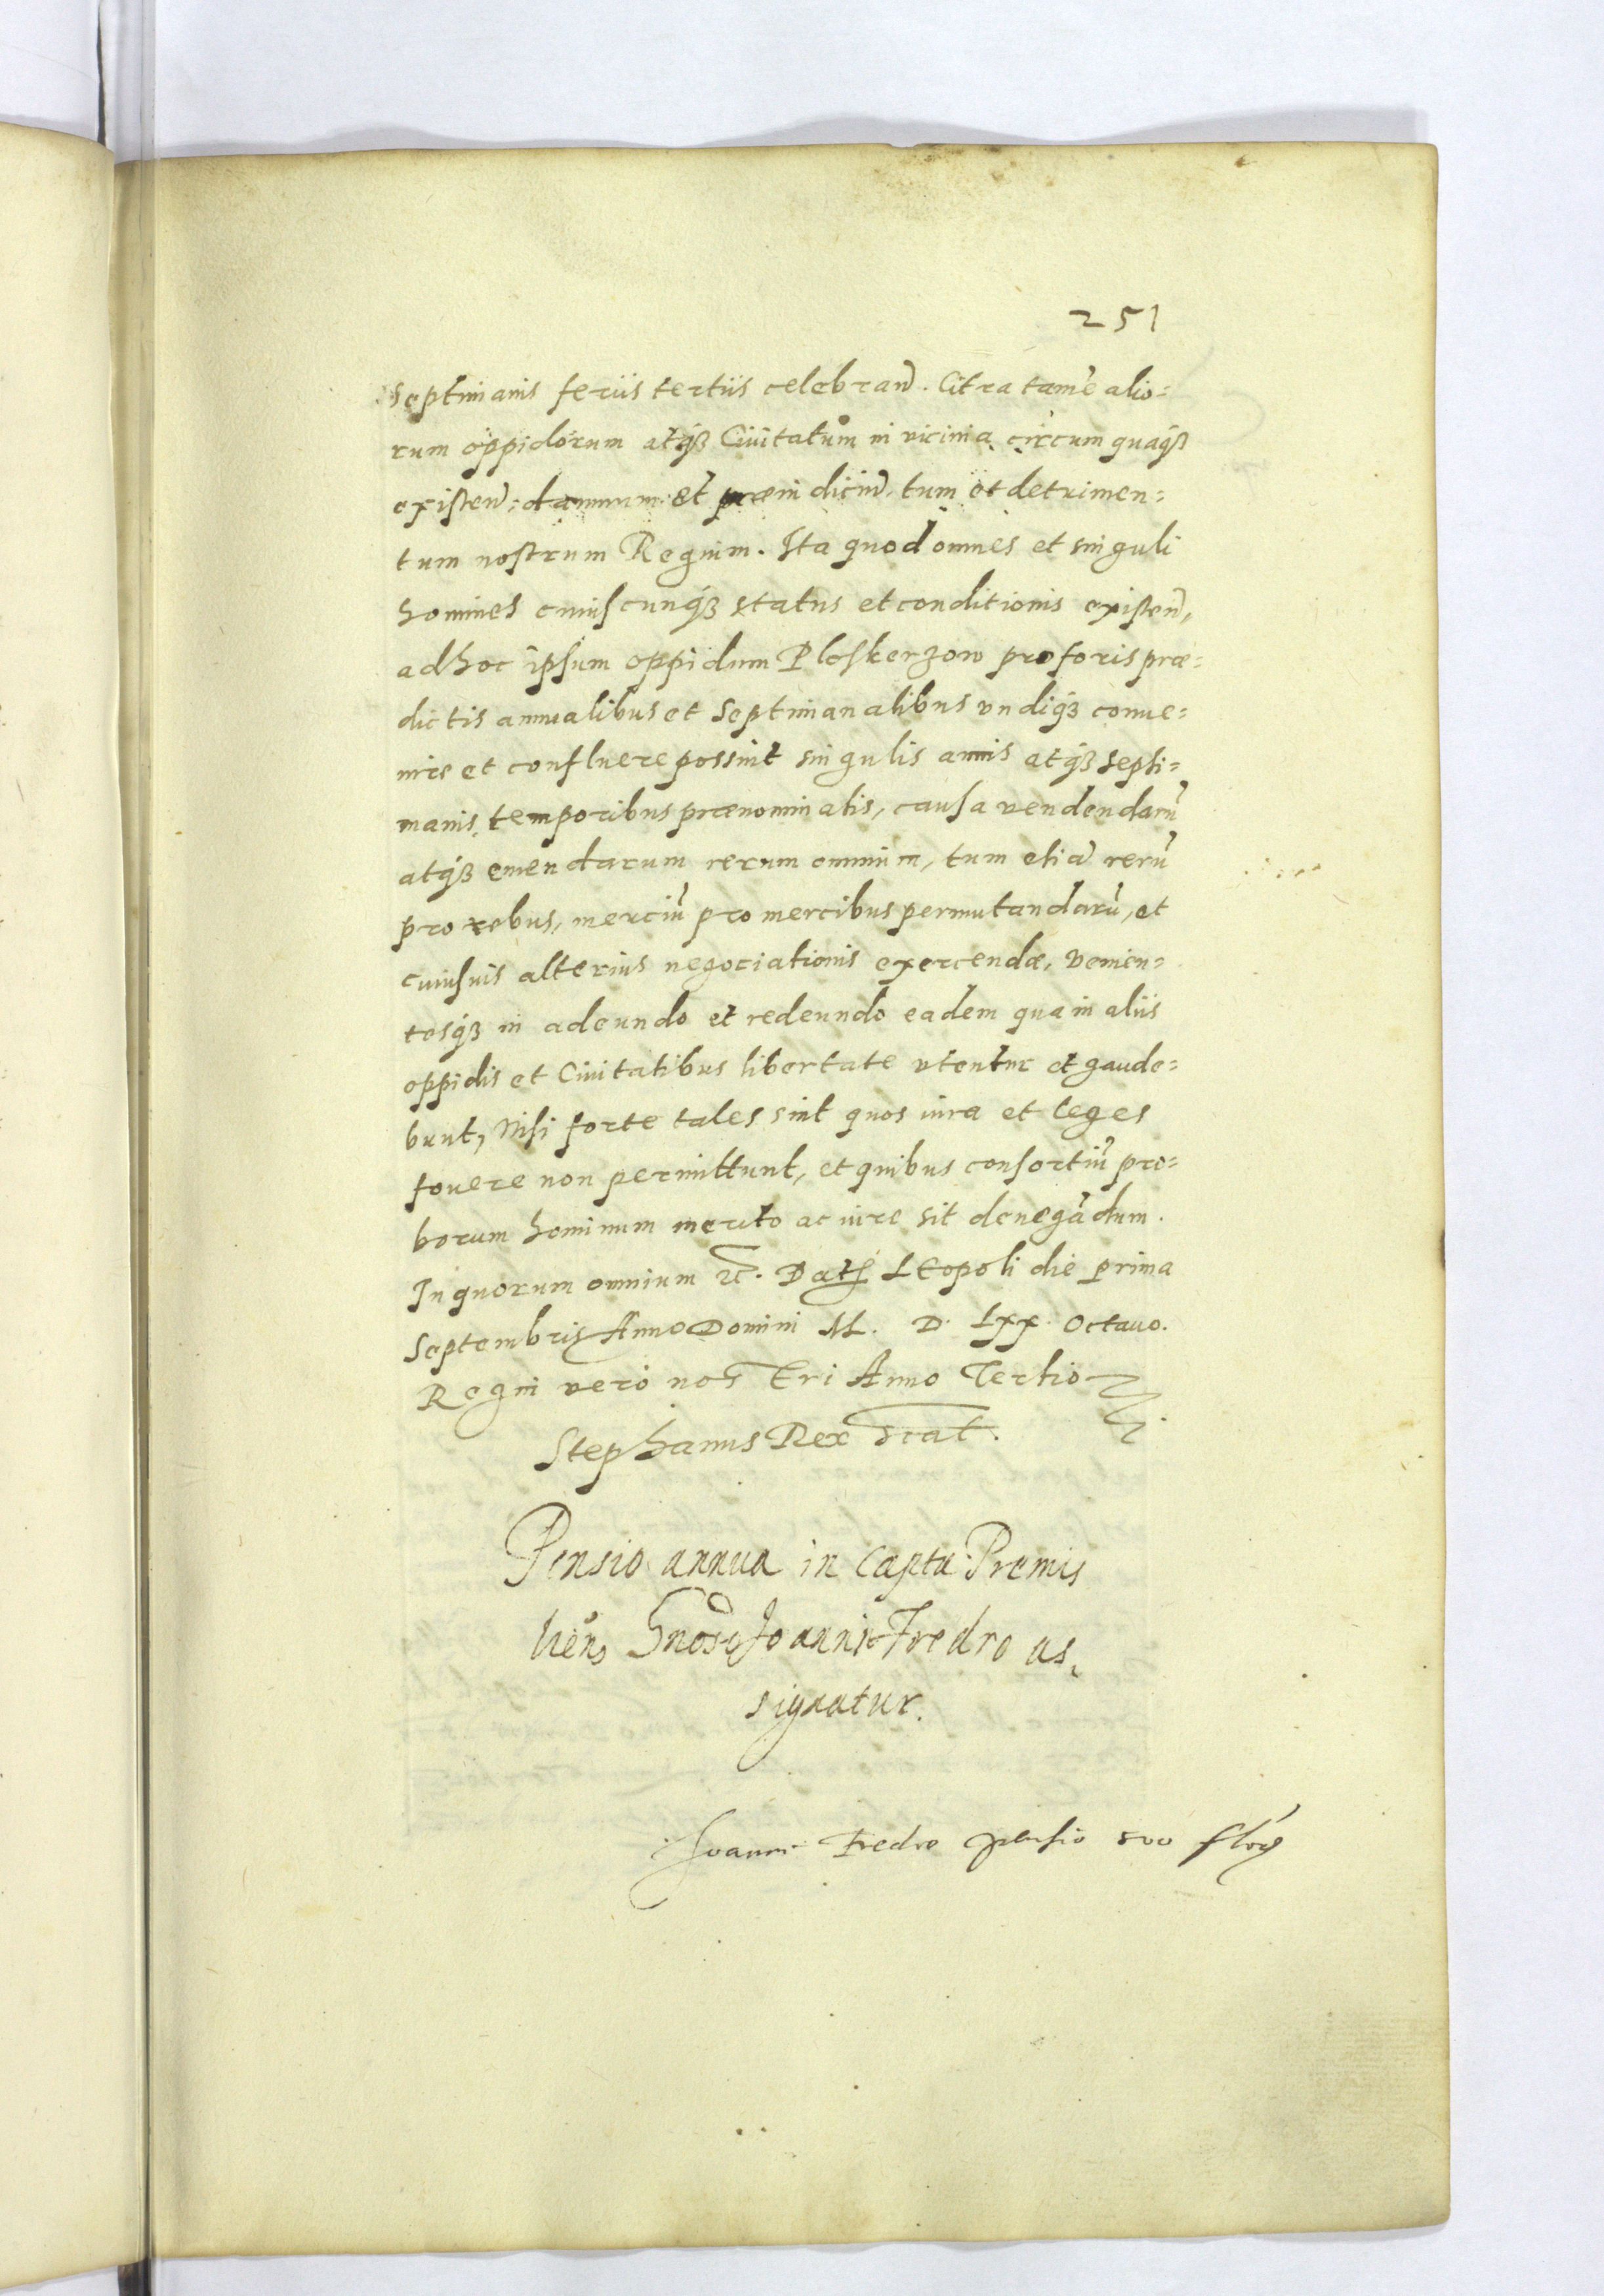 251
Septimanis feriis tertiis celebran̄. Citra tamē alio=
rum oppidorum atq́ꝫ Ciuitatum in vicinia circumquaq́ꝫ
existen̄. damnum et præiudiciū, tum et detrimen=
tum nostrum Regium. Ita quod omnes et singuli
homines cuiuscunq́ꝫ status et conditionis existen̄,
ad hoc ipsum oppidum Ploskerzow pro foris præ=
dictis annualibus et Septimanalibus vndiq́ꝫ conue=
nire et confluere possint singulis annis atq́ꝫ septi=
manis temporibus prænominatis, causa vendendarū
atq́ꝫ emendarum rerum omnium, tum etiā rerū
pro rebus, merciū pro mercibus permutandarū, et
cuiusuis alterius negociationis exercendæ, Venien=
tesq́ꝫ in adeundo et redeundo eadem qua in aliis
oppidis et Ciuitatibus libertate vtentur et gaude=
bunt, Nisi forte tales sint quos iura et leges
fouere non permittunt, et quibus consortiū pro=
borum hominum merito ac iure sit denegādum.
In quorum omnium ꝛc̄. Datꝭ LEopoli die prima
Septembris Anno Domini M. D. Lxx Octauo.
Regni vero nostri Anno Tertio
Stephanus Rex s̄c̄at.
Pensio annua in Capta. Premis
lien̄ Gnōso Joanni Fredro as,
signatur.
Joanni Fredro pensio 500 flor